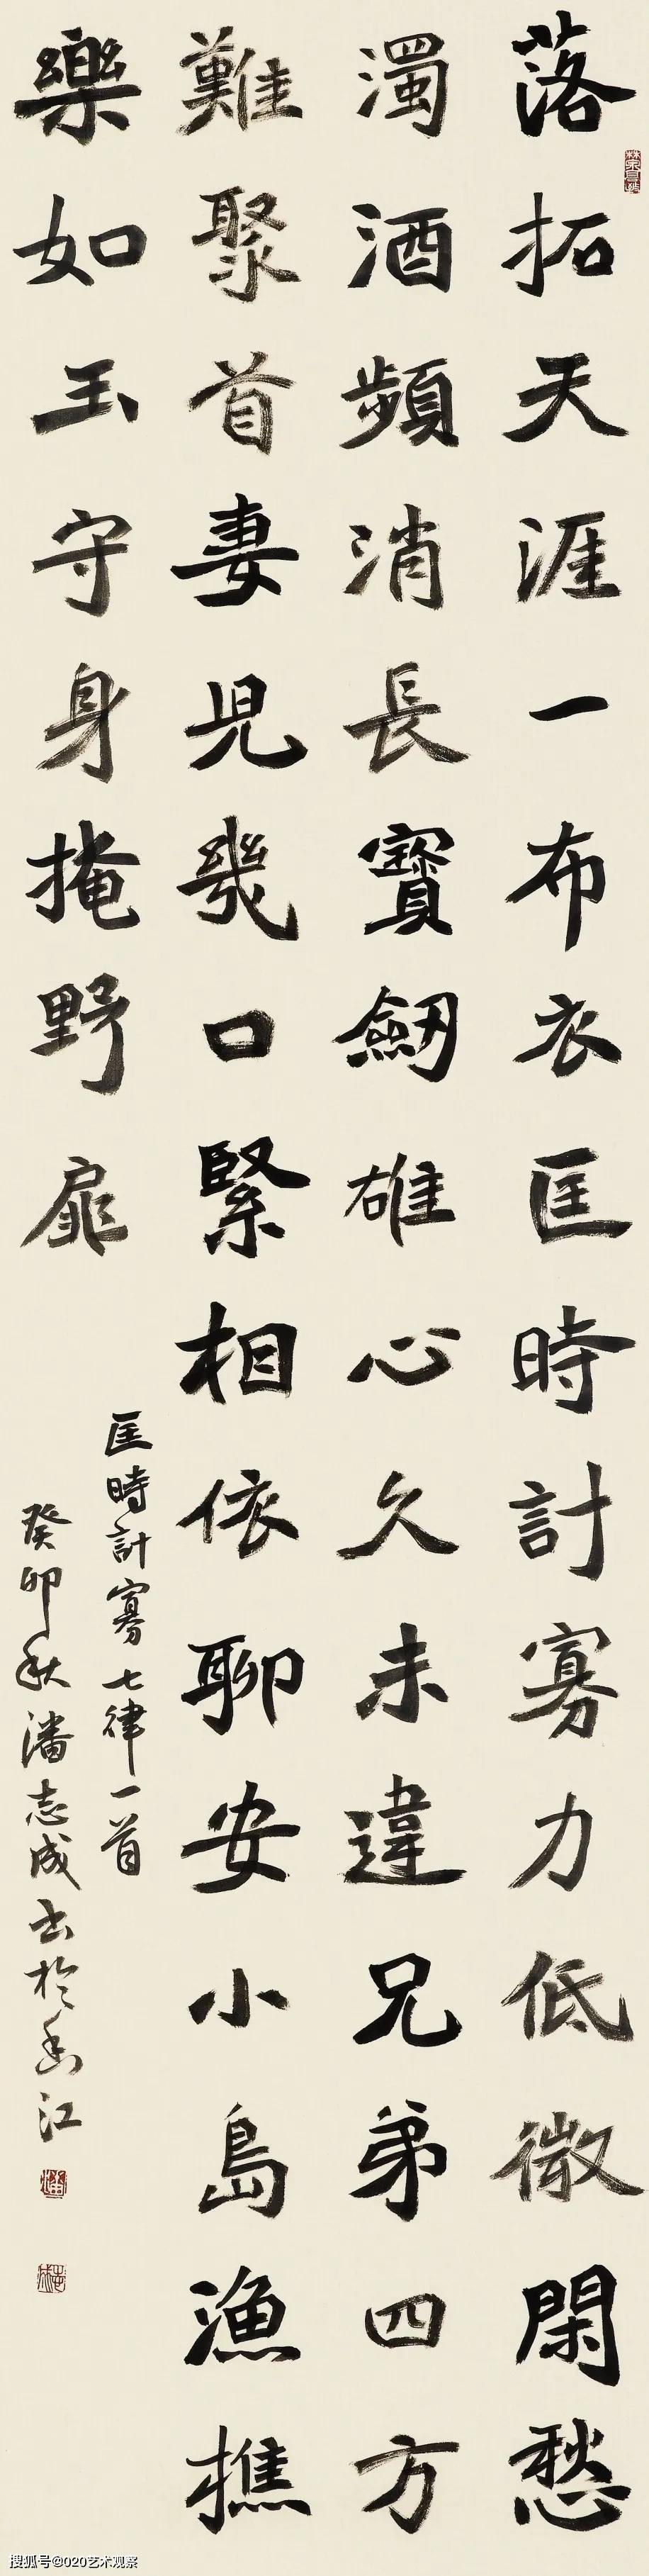 落拓天涯一布衣匡時計寡力低微閑愁
濁酒頻消長寶劒雄心久未違兄弟四方
難聚首妻児幾口緊相依聊安小島漁樵
樂如玉守身掩野扉
匡時計寡七律一首
癸卯秋潘志成书於香江
搜狐号@020艺术观察